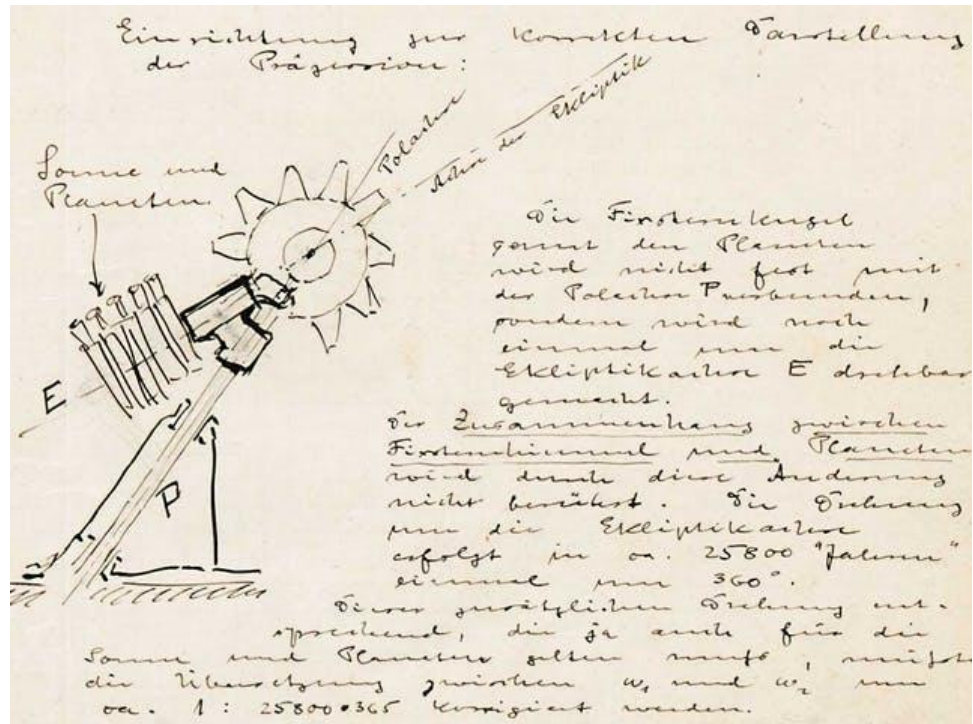 Einrichtung zur korrekten Darstellung
der Präzession:
Polachse
Achse der Ekliptik
Sonne und
Planeten
Die Fixsternkugel
samt den Planeten
wird nicht fest mit
der Polachse P verbunden,
sondern wird noch
einmal um die
Ekliptikachse E drehbar
gemacht.
E
P
Der Zusammenhang zwischen
Fixsternhimmel und Planeten
wird durch diese Änderung
nicht berührt. Die Drehung
um die Ekliptikachse
erfolgt in ca. 25800 "Jahren"
einmal um 360°.
Dieser zusätzlichen Drehung ent-
sprechend, die ja auch für die
Sonne und Planeten gelten muß, müßte
die Übersetzung zwischen w₁ und w₂ um
ca. 1 : 25800•365 korrigiert werden.